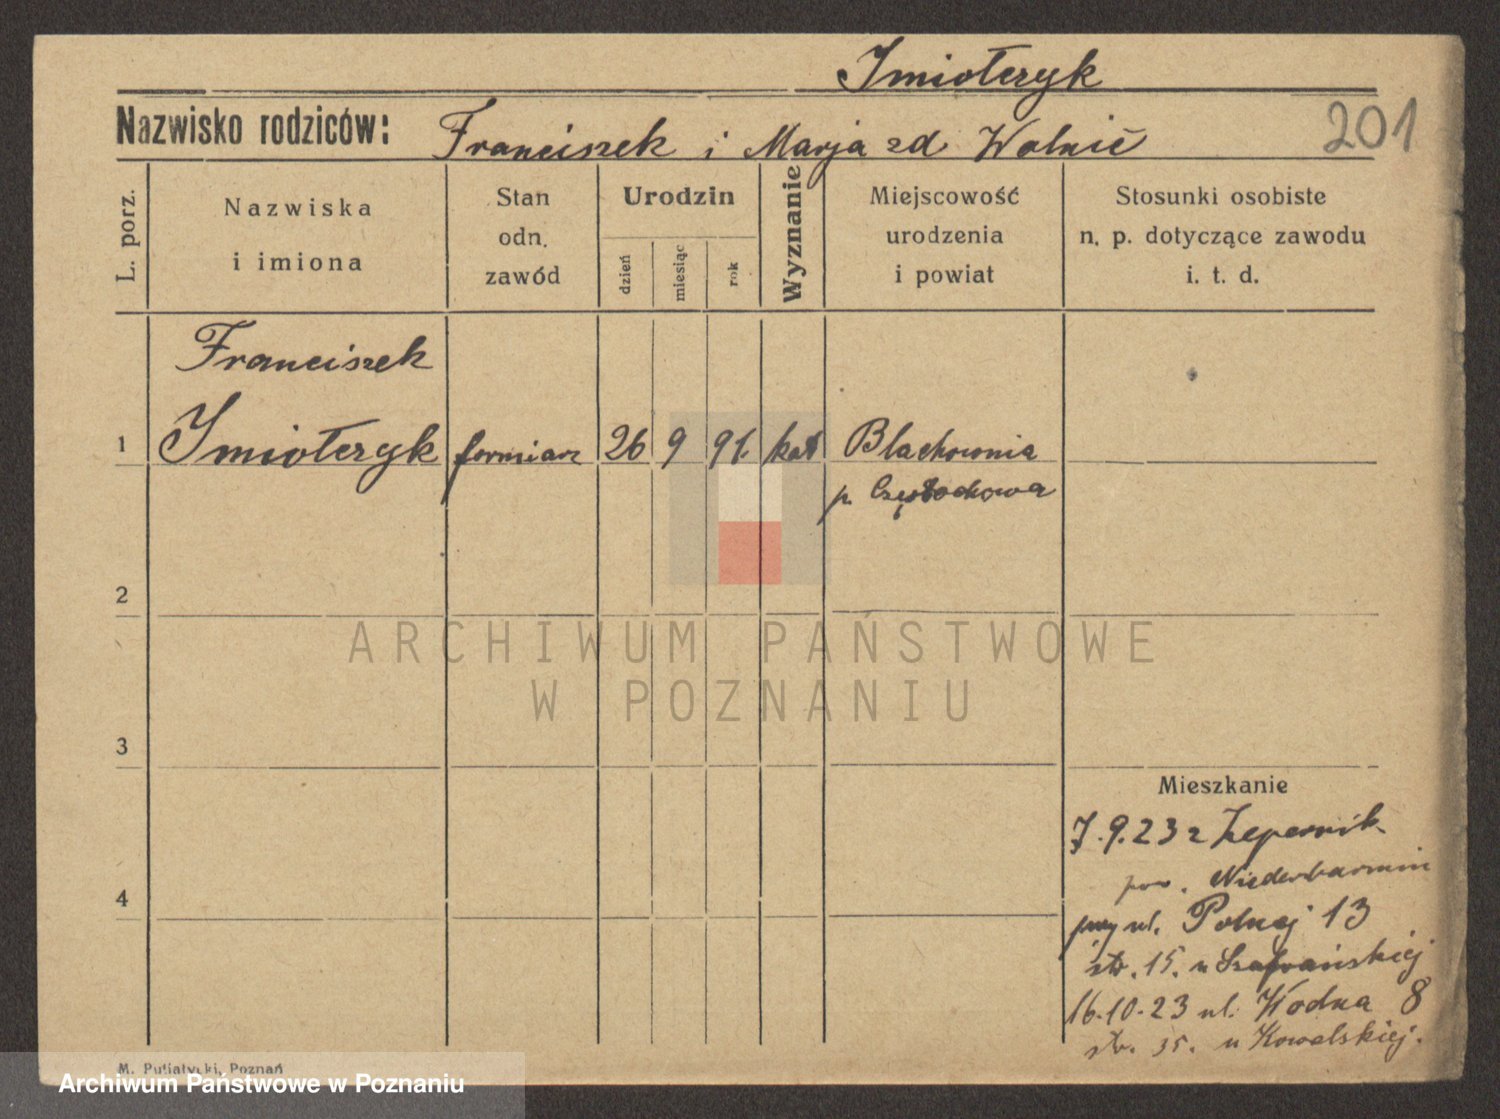 Imiołczyk
Nazwisko rodziców: Franciszek i Marja zd Wolnic
201
L. porz.
Nazwiska
i imiona
Stan
odn.
zawód
Urodzin
dzień
miesiąc
rok
Wyznanie
Miejscowość
urodzenia
i powiat
Stosunki osobiste
n. p. dotyczące zawodu
i. t. d.
Franciszek
1 Imiołczyk formiarz 26 9 91. kat Blachownia
p. Częstochowa
2
ARCHIWUM PAŃSTWOWE
W POZNANIU
3
Mieszkanie
7.9.23 z Zepernik
pow. Niederbarnim
4
przy ul. Polnej 13
str. 15. u Szafrańskiej
16.10.23 ul. Wodna 8
str. 35. u Kowalskiej.
M. Putiatycki, Poznań
Archiwum Państwowe w Poznaniu